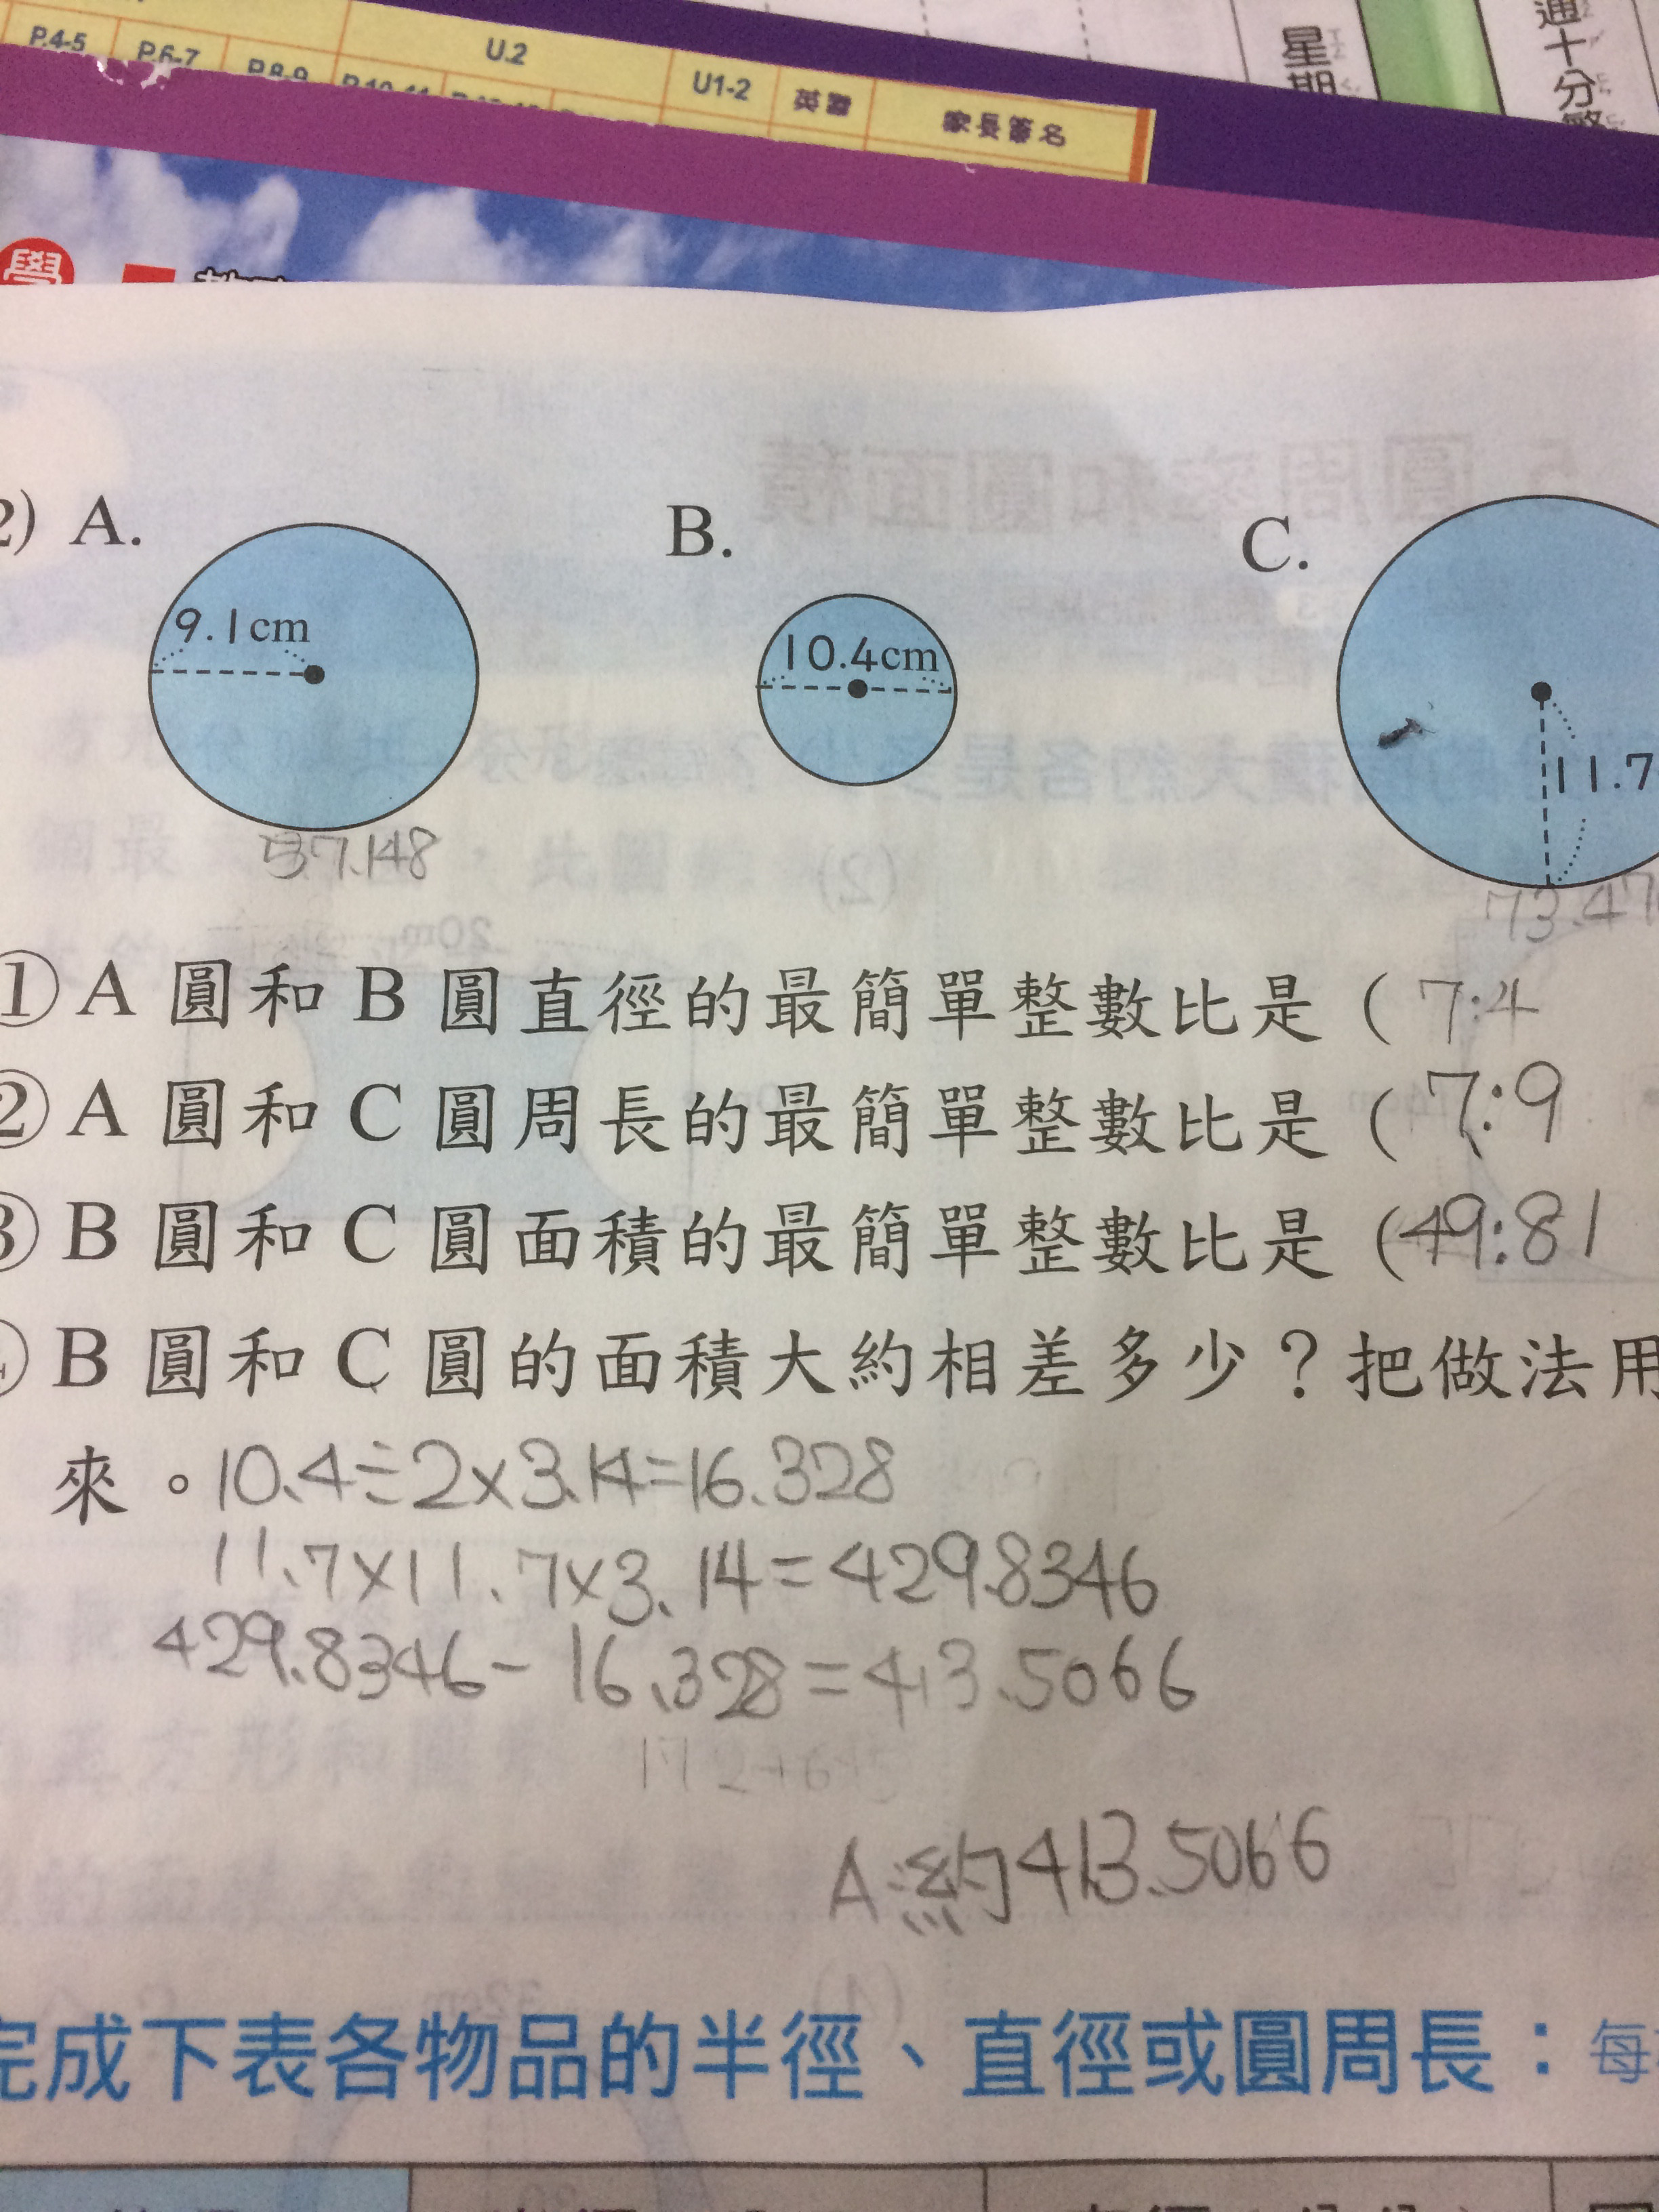 P.4-5 P.6-7 P.8-9 U.2 U1-2 英聽 家長簽名
星期
通十分
學
2) A. B. C.
9.1cm 10.4cm 11.7
37.148 73.47
① A 圓和 B 圓直徑的最簡單整數比是( 7:4
② A 圓和 C 圓周長的最簡單整數比是( 7:9
B 圓和 C 圓面積的最簡單整數比是(49:81
B 圓和 C 圓的面積大約相差多少?把做法用
來。10.4÷2×3.14=16.328
11.7×11.7×3.14=429.8346
429.8346-16.328=413.5066
A:約413.5066
完成下表各物品的半徑、直徑或圓周長:每